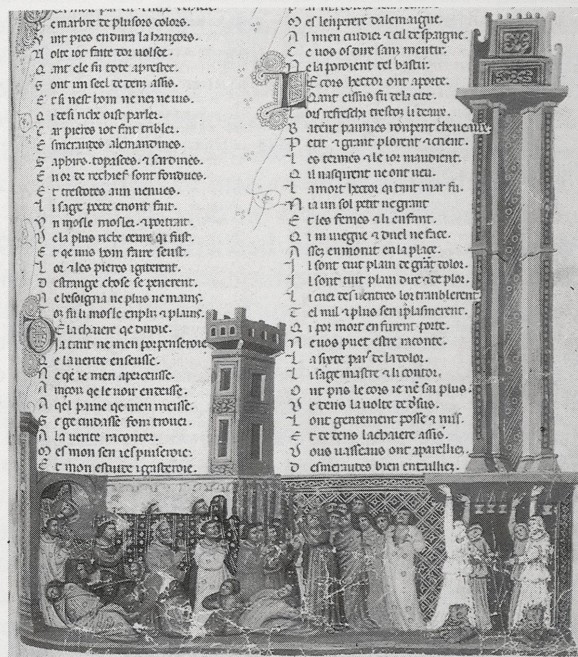 e marbre de plusors colors.
V int pies en dura la hancors.
M olte iot faite dor uolsee.
Q ant ele fu tote aprestee.
S ont un seel de tem assis.
E t si nest hom ne nei ne uis.
Q i de si riche oist parler.
C ar pieres iot fait tribler.
E smeraudes alemandines.
S aphirs. topasces. & sardines.
E n or de rechief sont fondues.
E t trestotes aun uenues.
L i sage poete en ont fait.
V n mosle mosler. & portrait.
D e la plus riche oeure qi fust.
E t qe nus hom faire seust.
L or & les pieres igiterent.
D estrange chose se penerent.
N e besoigna ne plus ne mains.
T ot fu li mosle enplis & plains.
D E la chaiere qe diroie.
Ja tant ne men porpenseroie
Q e la uerite en seusse.
N e qe ie men aperceusse.
A inçon qe le uoir en deisse.
A qel paine qe men meisse.
S e ge cuidasse fom trouer.
A la uerite raconter.
M es mon sen i espuiseroie.
E t mon estuite i gasteroie.
M es lenperere dalemaigne.
A l mien cuidier & cil de spaigne.
C e uos os dire sanz mentir.
N e la poroient tel bastir.
L E cors hector ont aporte.
Q ant eissus fu de la cite.
L ors refreschi tristor li deaus.
B atent paumes ronpent cheueaus.
P etit & grant plorent & crient.
L es termes & le ior maudient.
Q il nasquirent ne ont ueu.
L a mort hector qi tant mar fu.
N i a un sol petit ne grant
E t les femes & li enfant.
Q i ni uiegne & duel ne face.
A ssez en morut en la place.
I l sont tuit plain de grant dolor.
I l sont tuit plain dire & de plor.
L i cuer des uentres lor tranblerent.
T el mil & plus sen i plasmerent.
Q i por mort en furent porte.
N e uos puet estre raconte.
L a siste part de la dolor.
L i sage maistre & li contor.
O nt pris le cors ie ne sai plus.
D e dens la uolte de desus.
L ont gentement posse & mis.
E t de dens la chaiere assis.
D ous uasseaus ont apareillier.
D esmeraudes bien entaillier.